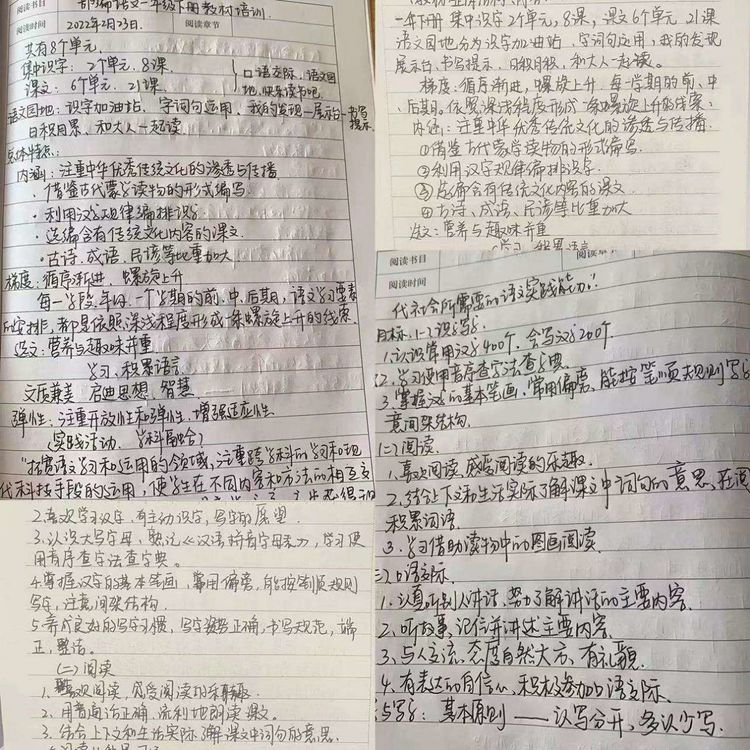 阅读书目 部编语文一年级下册教材培训.
阅读时间 2022年2月23日. 阅读章节
共有8个单元.
集中识字: 2个单元, 8课.
课文: 6个单元. 21课.
口语交际、语文园地、快乐读书吧.
语文园地: 识字加油站、字词句运用、我的发现—展示台—书写提示
日积月累、和大人一起读
总体特点:
内涵: 注重中华优秀传统文化的渗透与传播
·借鉴古代蒙学读物的形式编写
·利用汉字规律编排识字
·选编含有传统文化内容的课文
·古诗、成语、民谚等比重加大
梯度: 循序渐进、螺旋上升
每一学段、年级、一个学期的前、中、后期, 语文学习要素
的安排, 都是依照深浅程度形成一条螺旋上升的线索.
选文: 营养与趣味并重
学习、积累语言
文质兼美 启迪思想、智慧
弹性: 注重开放性和弹性, 增强适应性
(实践活动、学科融合)
"拓宽语文学习和运用的领域, 注重跨学科的学习和现
代科技手段的运用, 使学生在不同内容和方法的相互交
一年下册 集中识字2个单元, 8课, 课文6个单元 21课
语文园地分为识字加油站, 字词句运用, 我的发现
展示台, 书写提示, 日积月累, 和大人一起读.
梯度: 循序渐进, 螺旋上升 每一学期的前、中、
后期. 依照深浅程度形成一条螺旋上升的线索.
内涵: 注重中华优秀传统文化的渗透与传播.
①借鉴古代蒙学读物的形式编写.
②利用汉字规律编排识字.
③选编含有传统文化内容的课文
④古诗、成语、民谚等比重加大
选文: 营养与趣味并重
学习、积累语言
2.喜欢学习汉字, 有主动识字, 写字的愿望.
3.认识大写字母, 熟记《汉语拼音字母表》, 学习使
用音序查字法查字典.
4.掌握汉字的基本笔画, 常用偏旁, 能按笔顺规则
写字, 注意间架结构.
5.养成良好的写字习惯, 写字姿势正确, 书写规范, 端
正, 整洁.
(二) 阅读
1.喜欢阅读, 感受阅读的乐趣.
2.用普通话正确, 流利地朗读课文.
3.结合上下文和生活实际了解课文中词句的意思.
阅读书目
阅读时间
代社会所需要的语文实践能力."
目标, (一)识字写字:
1.认识常用汉字400个, 会写汉字200个.
2.学习使用音序查字法查字典.
3.掌握汉字的基本笔画, 常用偏旁, 能按笔顺规则写字
意间架结构.
(二)阅读.
1.喜欢阅读, 感受阅读的乐趣.
2.结合上下文和生活实际了解课文中词句的意思, 在阅
积累词语.
3.学习借助读物中的图画阅读.
三)口语交际.
1.认真听别人讲话, 努力了解讲话的主要内容.
2.听故事, 记住并讲述主要内容.
3.与人交流, 态度自然大方, 有礼貌.
4.有表达的自信心, 积极参加口语交际.
与写字: 基本原则——认写分开, 多认少写.